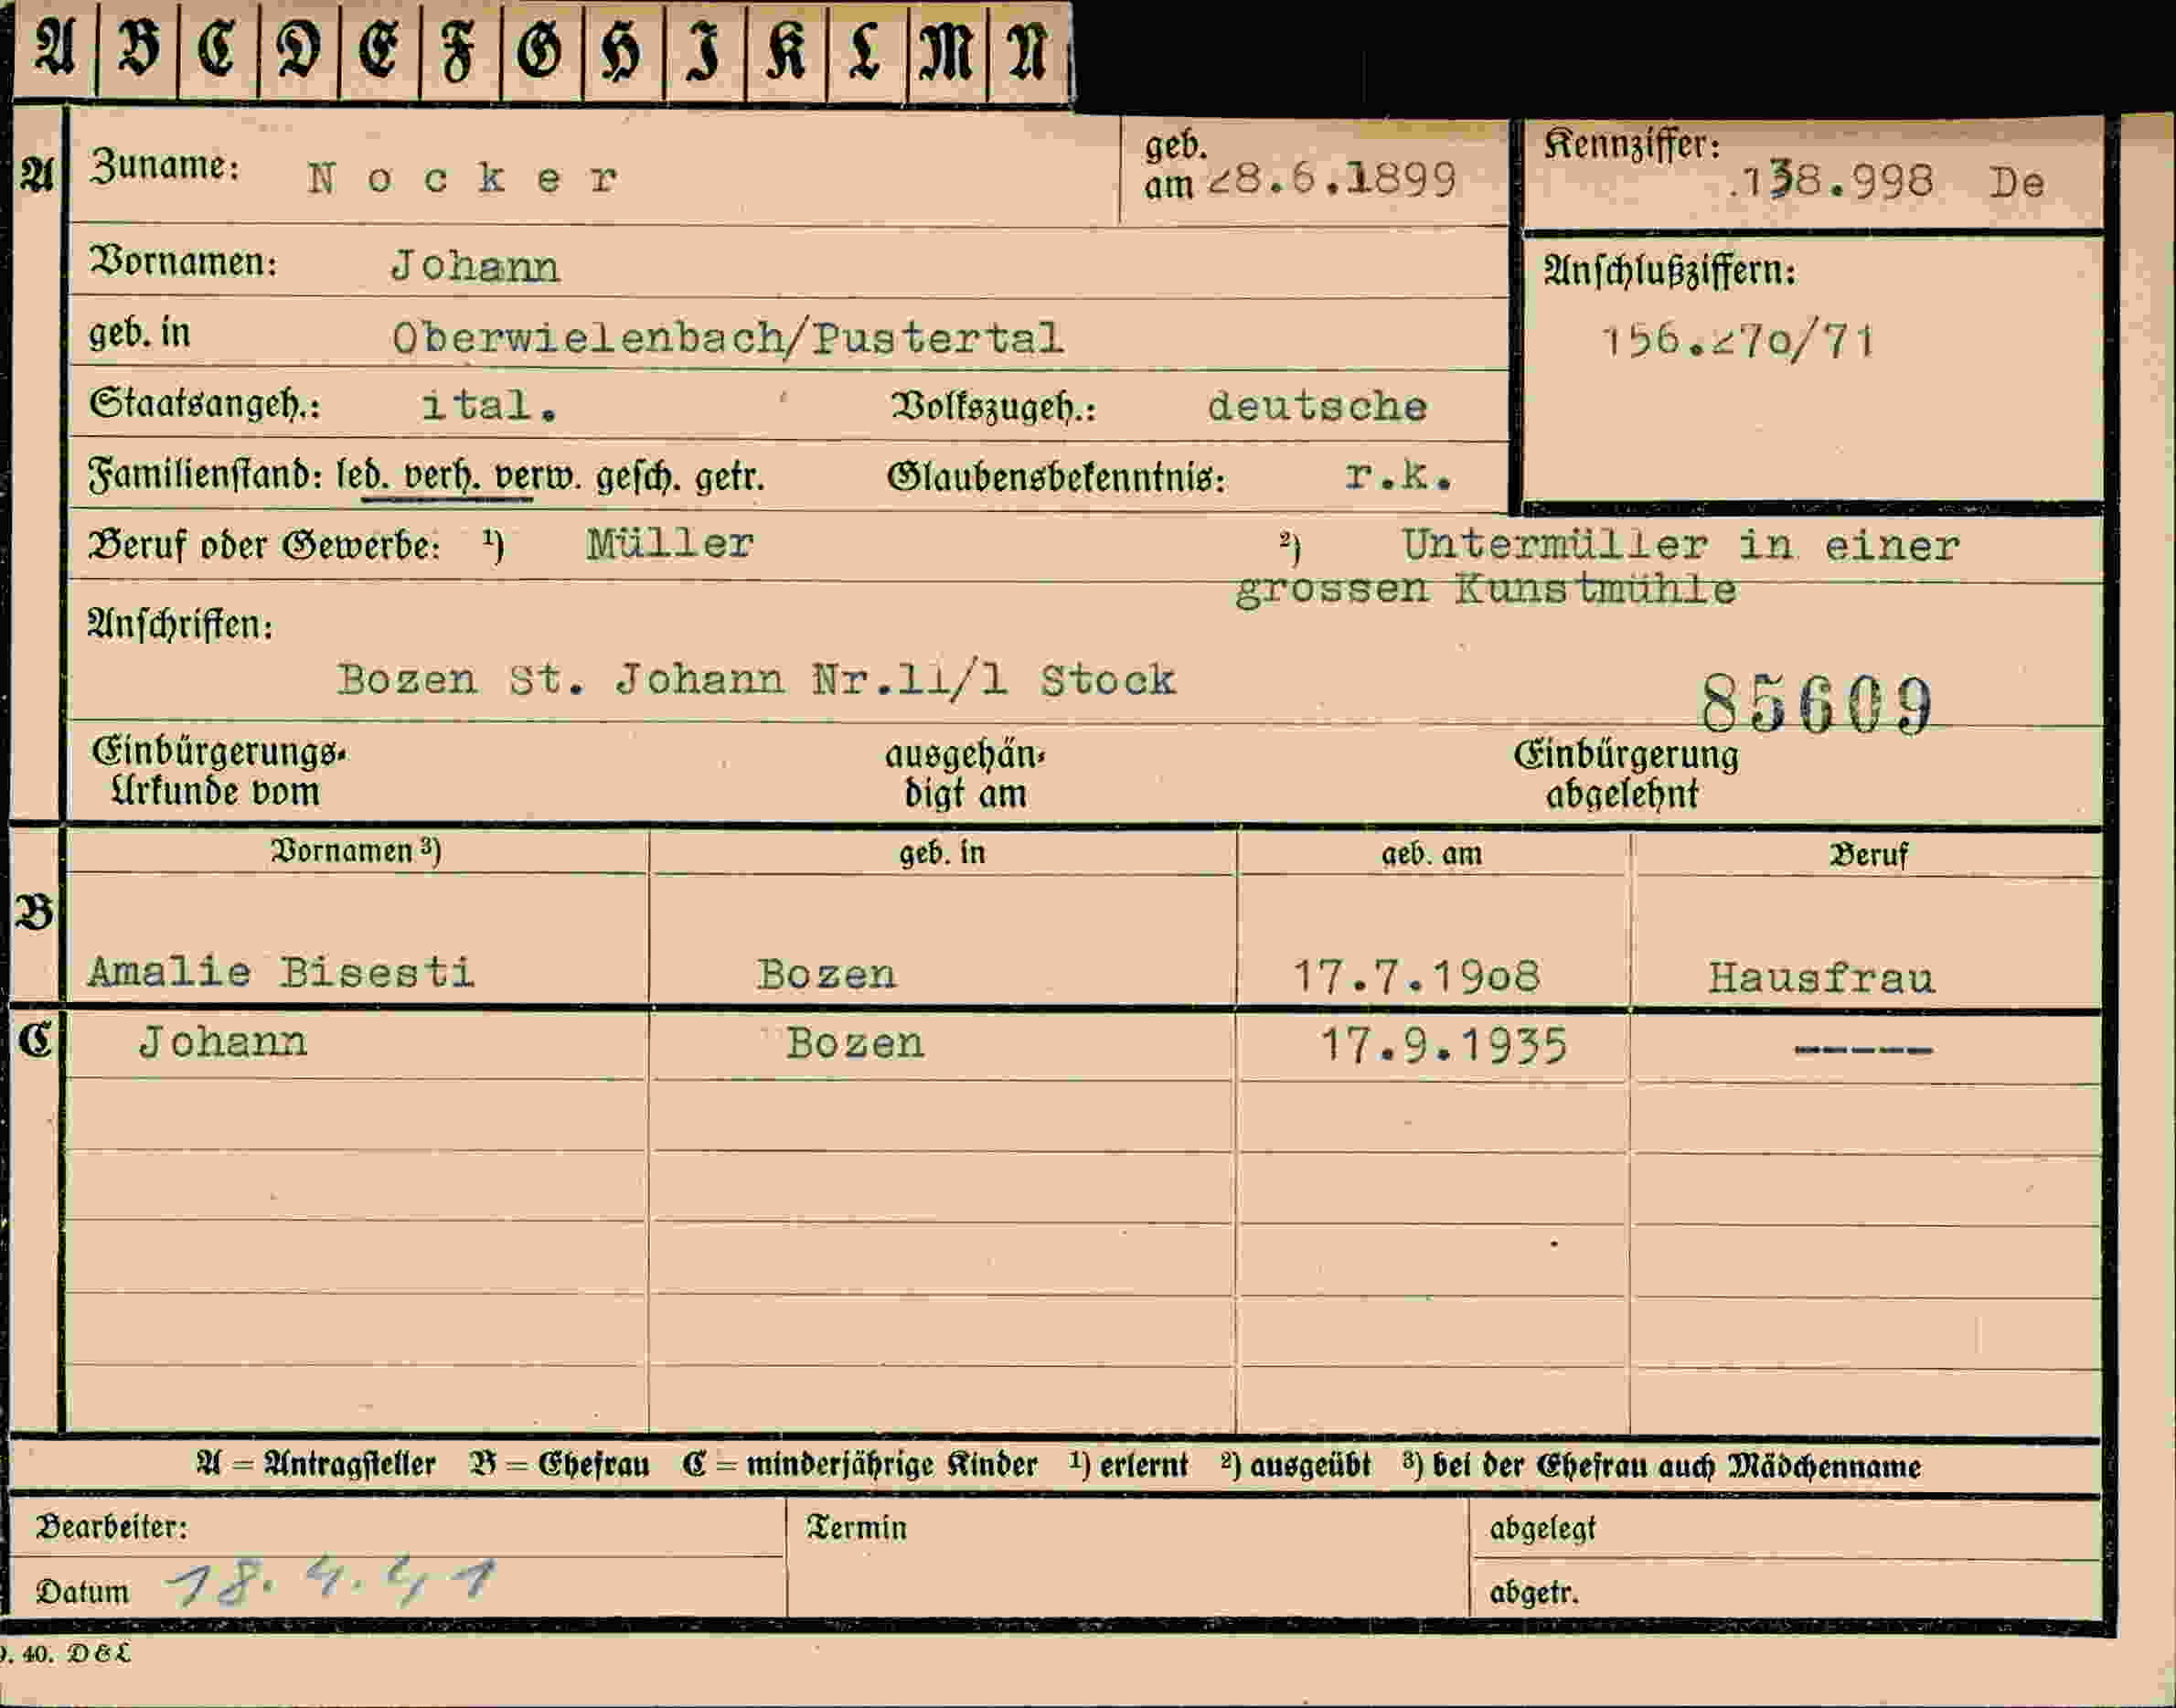 A B C D E F G H I K L M N
A Zuname: Nocker geb. am 28.6.1899 Kennziffer: 138.998 De
Vornamen: Johann Anschlußziffern:
geb. in Oberwielenbach/Pustertal 156.270/71
Staatsangeh.: ital. Volkszugeh.: deutsche
Familienstand: led. verh. verw. gesch. getr. Glaubensbekenntnis: r.k.
Beruf oder Gewerbe: ¹) Müller ²) Untermüller in einer
grossen Kunstmühle
Anschriften:
Bozen St. Johann Nr.11/1 Stock 85609
Einbürgerungs- ausgehän- Einbürgerung
Urkunde vom digt am abgelehnt
Vornamen ³) geb. in geb. am Beruf
B
Amalie Bisesti Bozen 17.7.1908 Hausfrau
C Johann Bozen 17.9.1935 -----
A = Antragsteller B = Ehefrau C = minderjährige Kinder ¹) erlernt ²) ausgeübt ³) bei der Ehefrau auch Mädchenname
Bearbeiter: Termin abgelegt
Datum 18.4.41 abgetr.
40. D&L